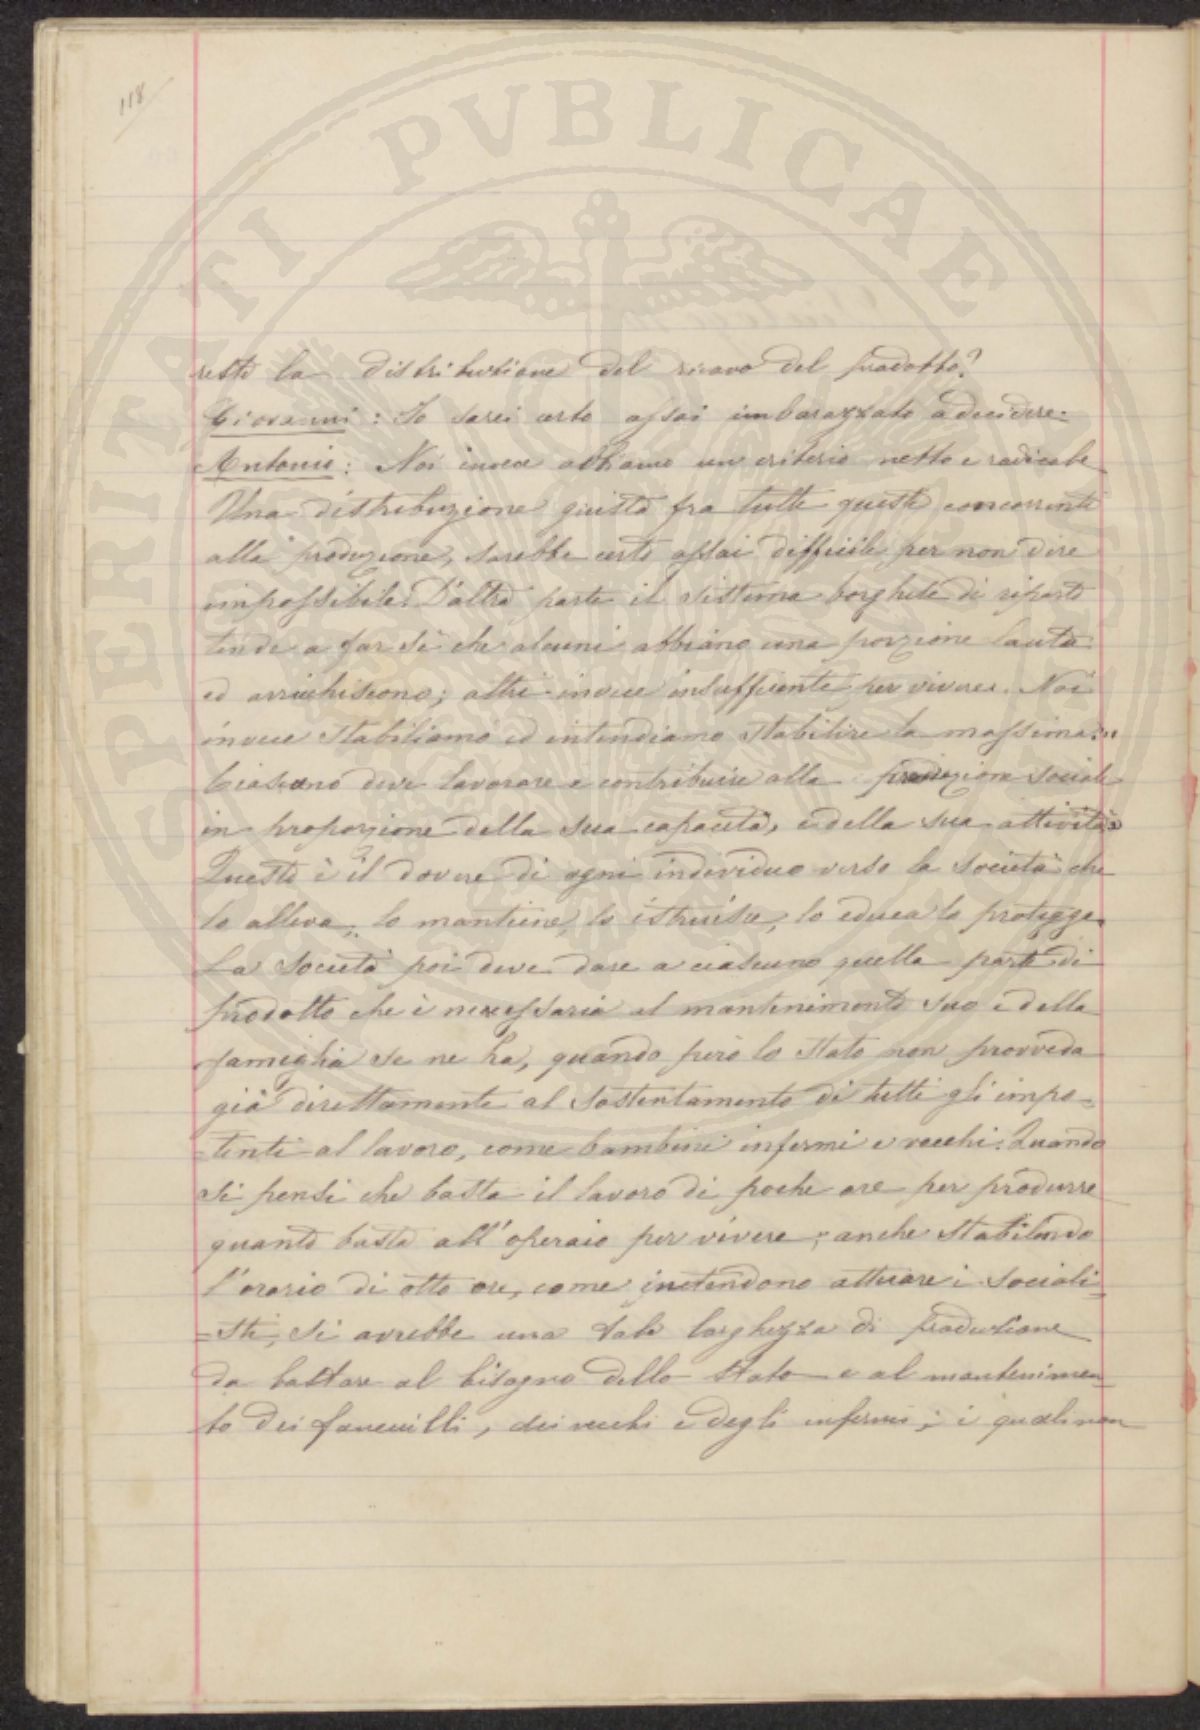 118
PROSPERITATI PUBLICAE
retta la distribuzione del ricavo del prodotto?
Giovanni: Io sarei certo assai imbarazzato a decidere.
Antonio: Noi invece abbiamo un criterio netto e radicale
Una distribuzione giusta fra tutti questi concorrenti
alla produzione, sarebbe certo assai difficile per non dire
impossibile. D'altra parte il sistema borghese di riparto
tende a far sì che alcuni abbiano una porzione lauta
ed arricchiscono; altri invece insufficiente per vivere. Noi
invece stabiliamo ed intendiamo stabilire la massima:
Ciascuno deve lavorare e contribuire alla produzione sociale
in proporzione della sua capacità, e della sua attività
Questo è il dovere di ogni individuo verso la società che
lo alleva, lo mantiene, lo istruisce, lo educa lo protegge.
La società poi deve dare a ciascuno quella parte di
prodotto che è necessaria al mantenimento suo e della
famiglia se ne ha, quando però lo stato non provveda
già direttamente al sostentamento di tutti gli impo=
tenti al lavoro, come bambini infermi e vecchi. Quando
si pensi che basta il lavoro di poche ore per produrre
quanto basta all'operaio per vivere; anche stabilendo
l'orario di otto ore, come intendono attuare i sociali=
=sti, si avrebbe una tale larghezza di produzione
da bastare al bisogno dello stato e al mantenimen=
to dei fanciulli, dei vecchi e degli infermi; i quali non